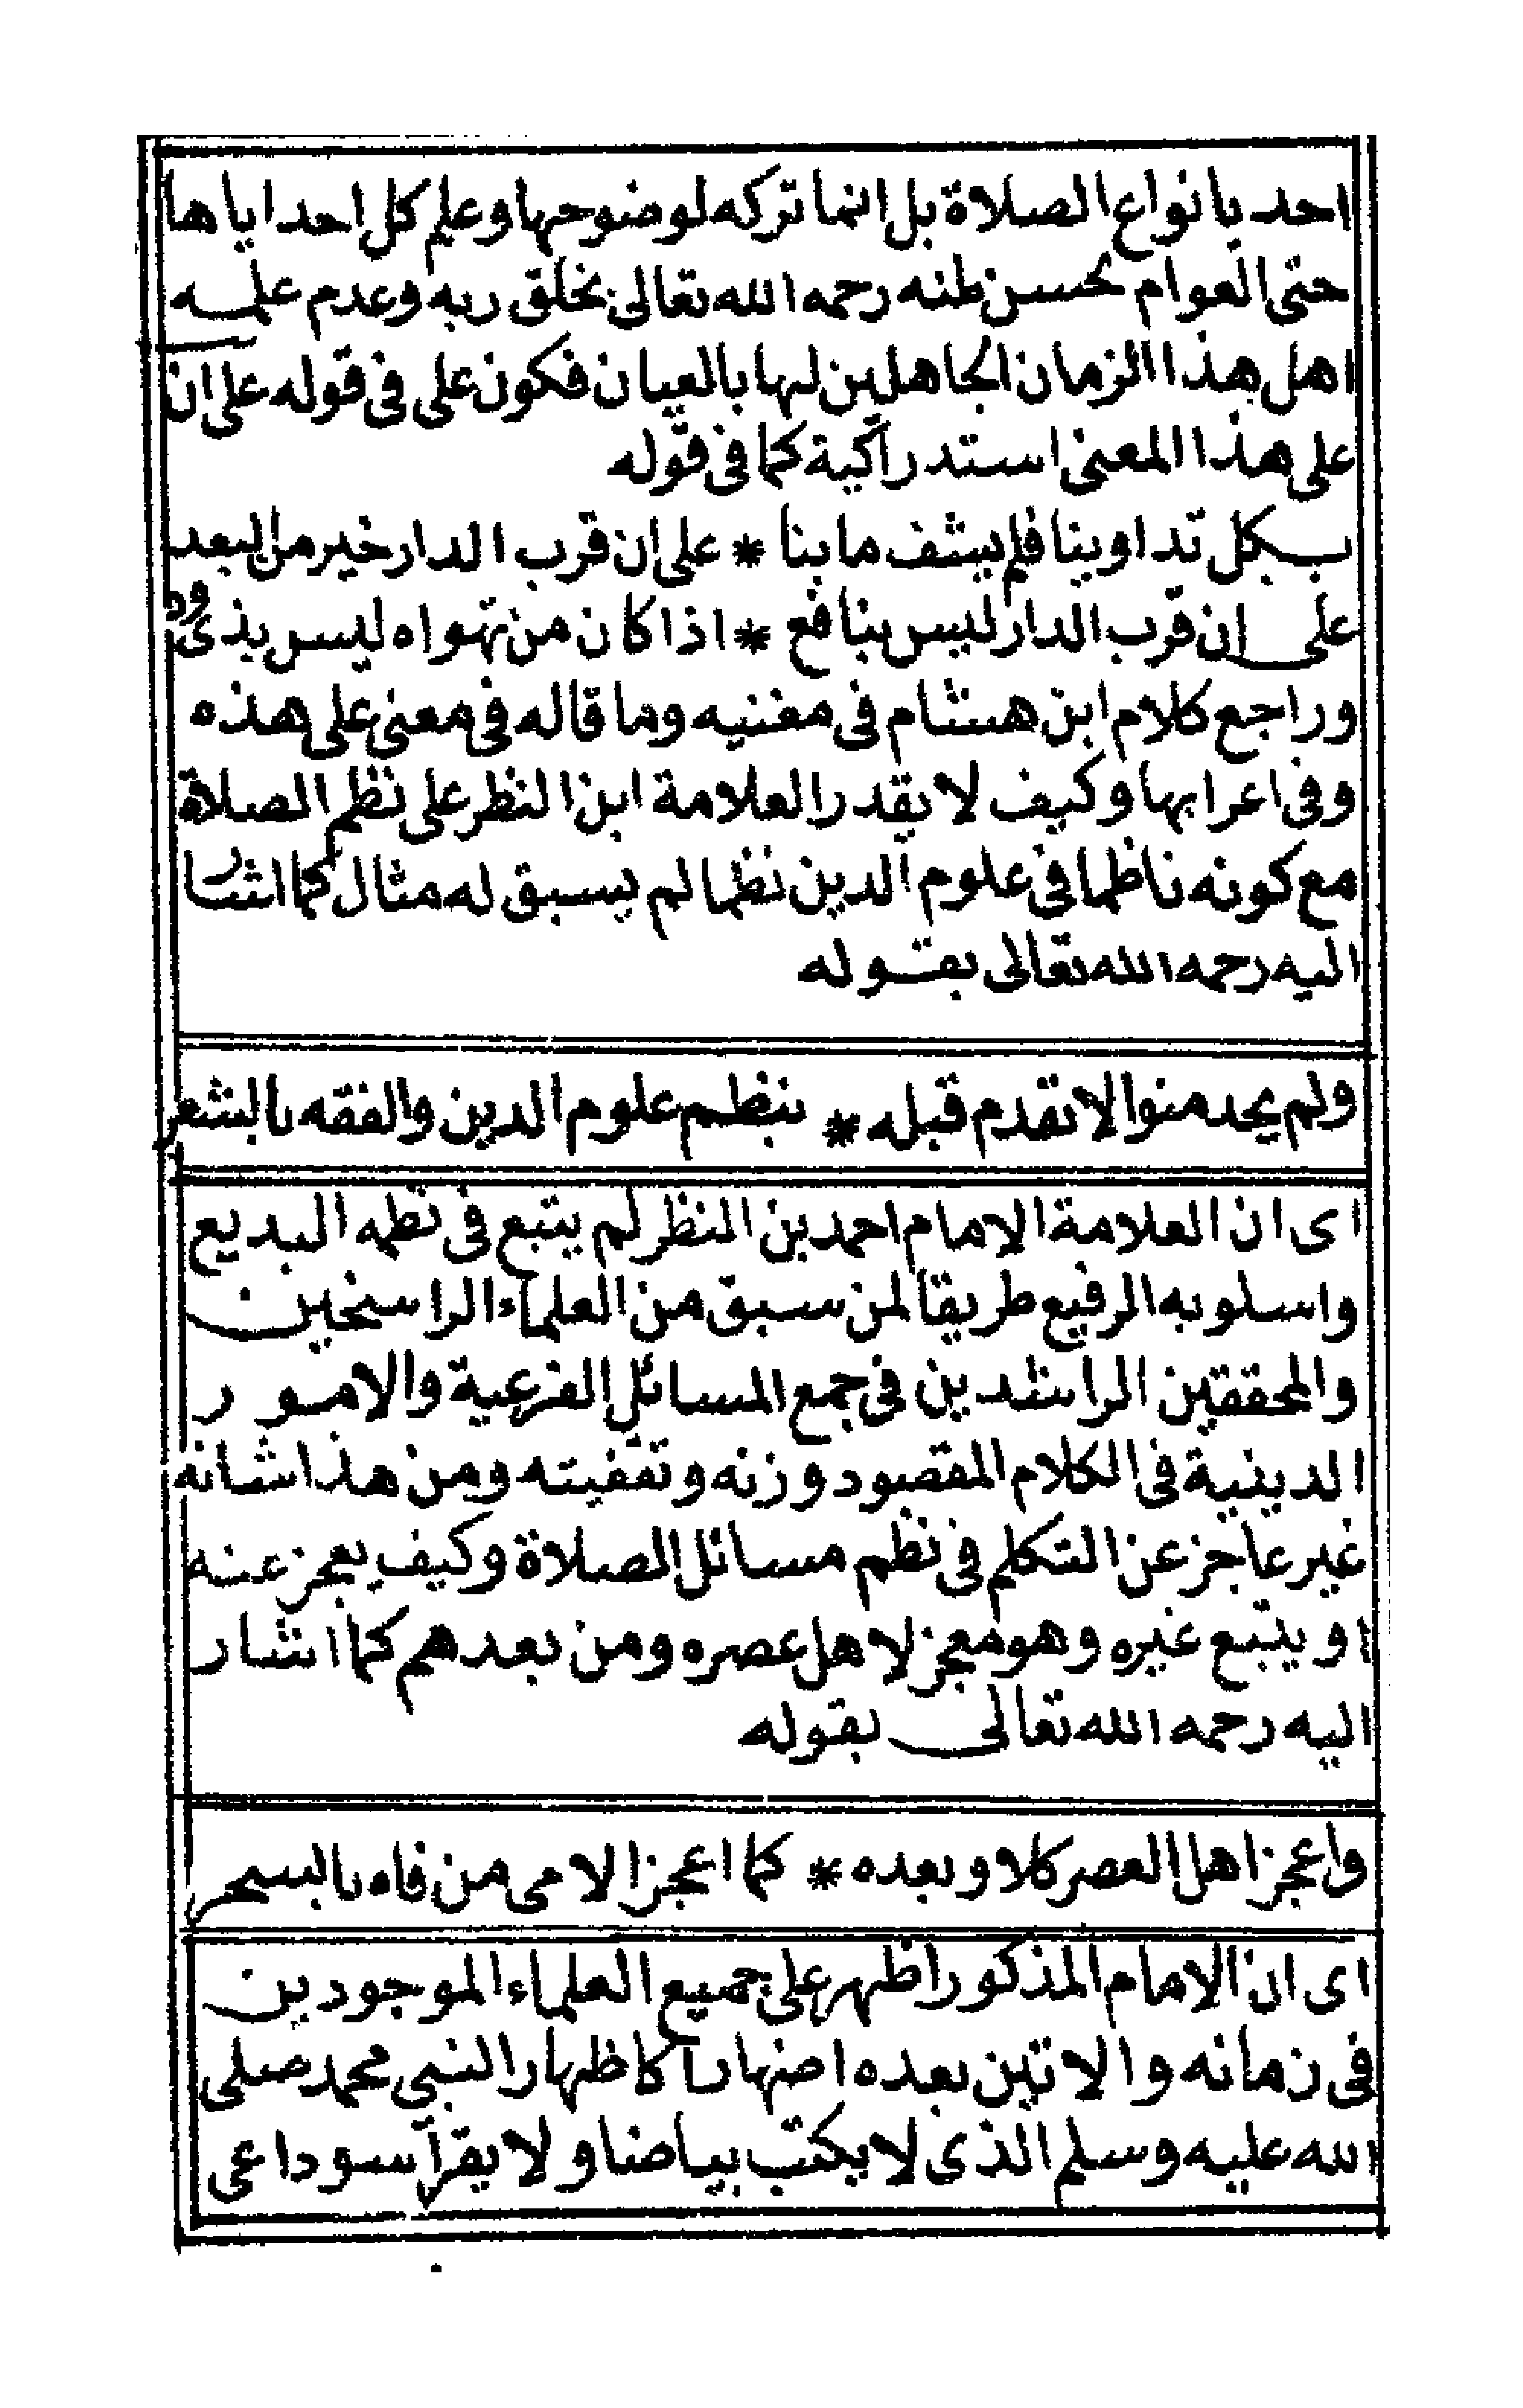 احد بانواع الصلاة بل انما تركه لوضوحها وعلم كل احد اياها
حتى العوام بحسن ظنه رحمه الله تعالى بخلق ربه وعدم علمه
اهل هذا الزمان الجاهلين لها بالعيان فكون على فى قوله على ان
على هذا المعنى استدراكية كما فى قوله
بكل تداوينا فلم يشف ما بنا * على ان قرب الدار خير من البعد
على ان قرب الدار ليس بنافع * اذا كان من تهواه ليس بذى ود
وراجع كلام ابن هشام فى مغنيه وما قاله فى معنى على هذه
وفى اعرابها وكيف لا يقدر العلامة ابن النظر على نظم الصلاة
مع كونه ناظما فى علوم الدين نظما لم يسبق له مثال كما اشار
اليه رحمه الله تعالى بقوله
ولم يحد منوالا تقدم قبله * بنظم علوم الدين والفقه بالشعر
اى ان العلامة الامام احمد بن النظر لم يتبع فى نظمه البديع
واسلوبه الرفيع طريقا لمن سبق من العلماء الراسخين
والمحققين الراشدين فى جمع المسائل الفرعية والامور
الدينية فى الكلام المقصود وزنه وتقفيته ومن هذا شانه
غير عاجز عن التكلم فى نظم مسائل الصلاة وكيف يعجز عنه
او يتبع غيره وهو معجز لاهل عصره ومن بعدهم كما اشار
اليه رحمه الله تعالى بقوله
واعجز اهل العصر كلا وبعده * كما اعجز الامى من فاه بالسحر
اى ان الامام المذكور اظهر على جميع العلماء الموجودين
فى زمانه والاتين بعده اضهارا كاظهار النبى محمد صلى
الله عليه وسلم الذى لا يكتب بياضا ولا يقرأ سودا عى